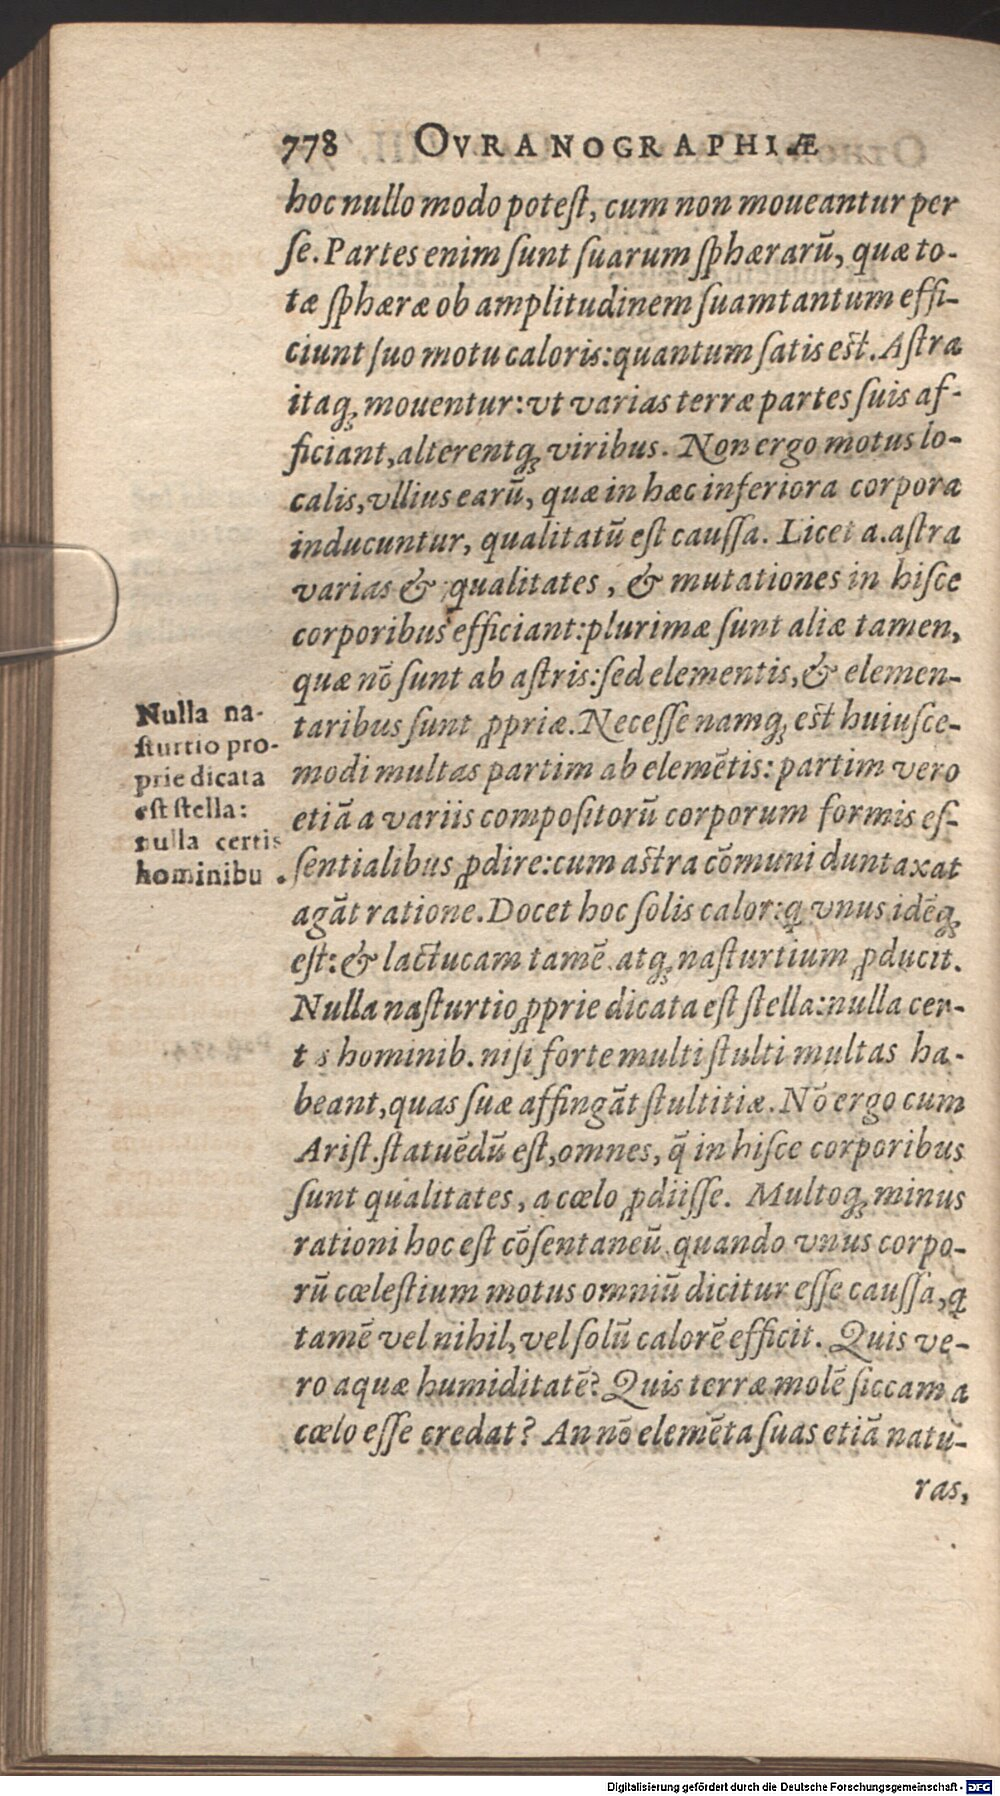 778 OVRANOGRAPHIÆ
hoc nullo modo potest, cum non moueantur per
se. Partes enim sunt suarum sphærarū, quæ to-
tæ sphæræ ob amplitudinem suam tantum effi-
ciunt suo motu caloris: quantum satis est. Astra
itaq; mouentur: vt varias terræ partes suis af-
ficiant, alterentq; viribus. Non ergo motus lo-
calis, vllius earū, quæ in hæc inferiora corpora
inducuntur, qualitatū est caussa. Licet a. astra
varias & qualitates, & mutationes in hisce
corporibus efficiant: plurimæ sunt aliæ tamen,
quæ nō sunt ab astris: sed elementis, & elemen-
taribus sunt ꝓpriæ. Necesse namq; est huiusce-
modi multas partim ab elemētis: partim vero
etiā a variis compositorū corporum formis es-
sentialibus ꝓdire: cum astra cōmuni duntaxat
agāt ratione. Docet hoc solis calor: ꝗ vnus idēq;
est: & lactucam tamē atq; nasturtium ꝓducit.
Nulla nasturtio ꝓprie dicata est stella: nulla cer-
t s hominib. nisi forte multi stulti multas ha-
beant, quas suæ affingāt stultitiæ. Nō ergo cum
Arist. statuēdū est, omnes, q̄ in hisce corporibus
sunt qualitates, a cœlo ꝓdiisse. Multoq; minus
rationi hoc est cōsentaneū quando vnus corpo-
rū cœlestium motus omniū dicitur esse caussa, ꝗ
tamē vel nihil, vel solū calorē efficit. Quis ve-
ro aquæ humiditatē? Quis terræ molē siccam a
cœlo esse credat? An nō elemēta suas etiā natu-
ras,
Nulla na-
sturtio pro-
prie dicata
est stella:
nulla certis
hominibu .
Digitalisierung gefördert durch die Deutsche Forschungsgemeinschaft - DFG